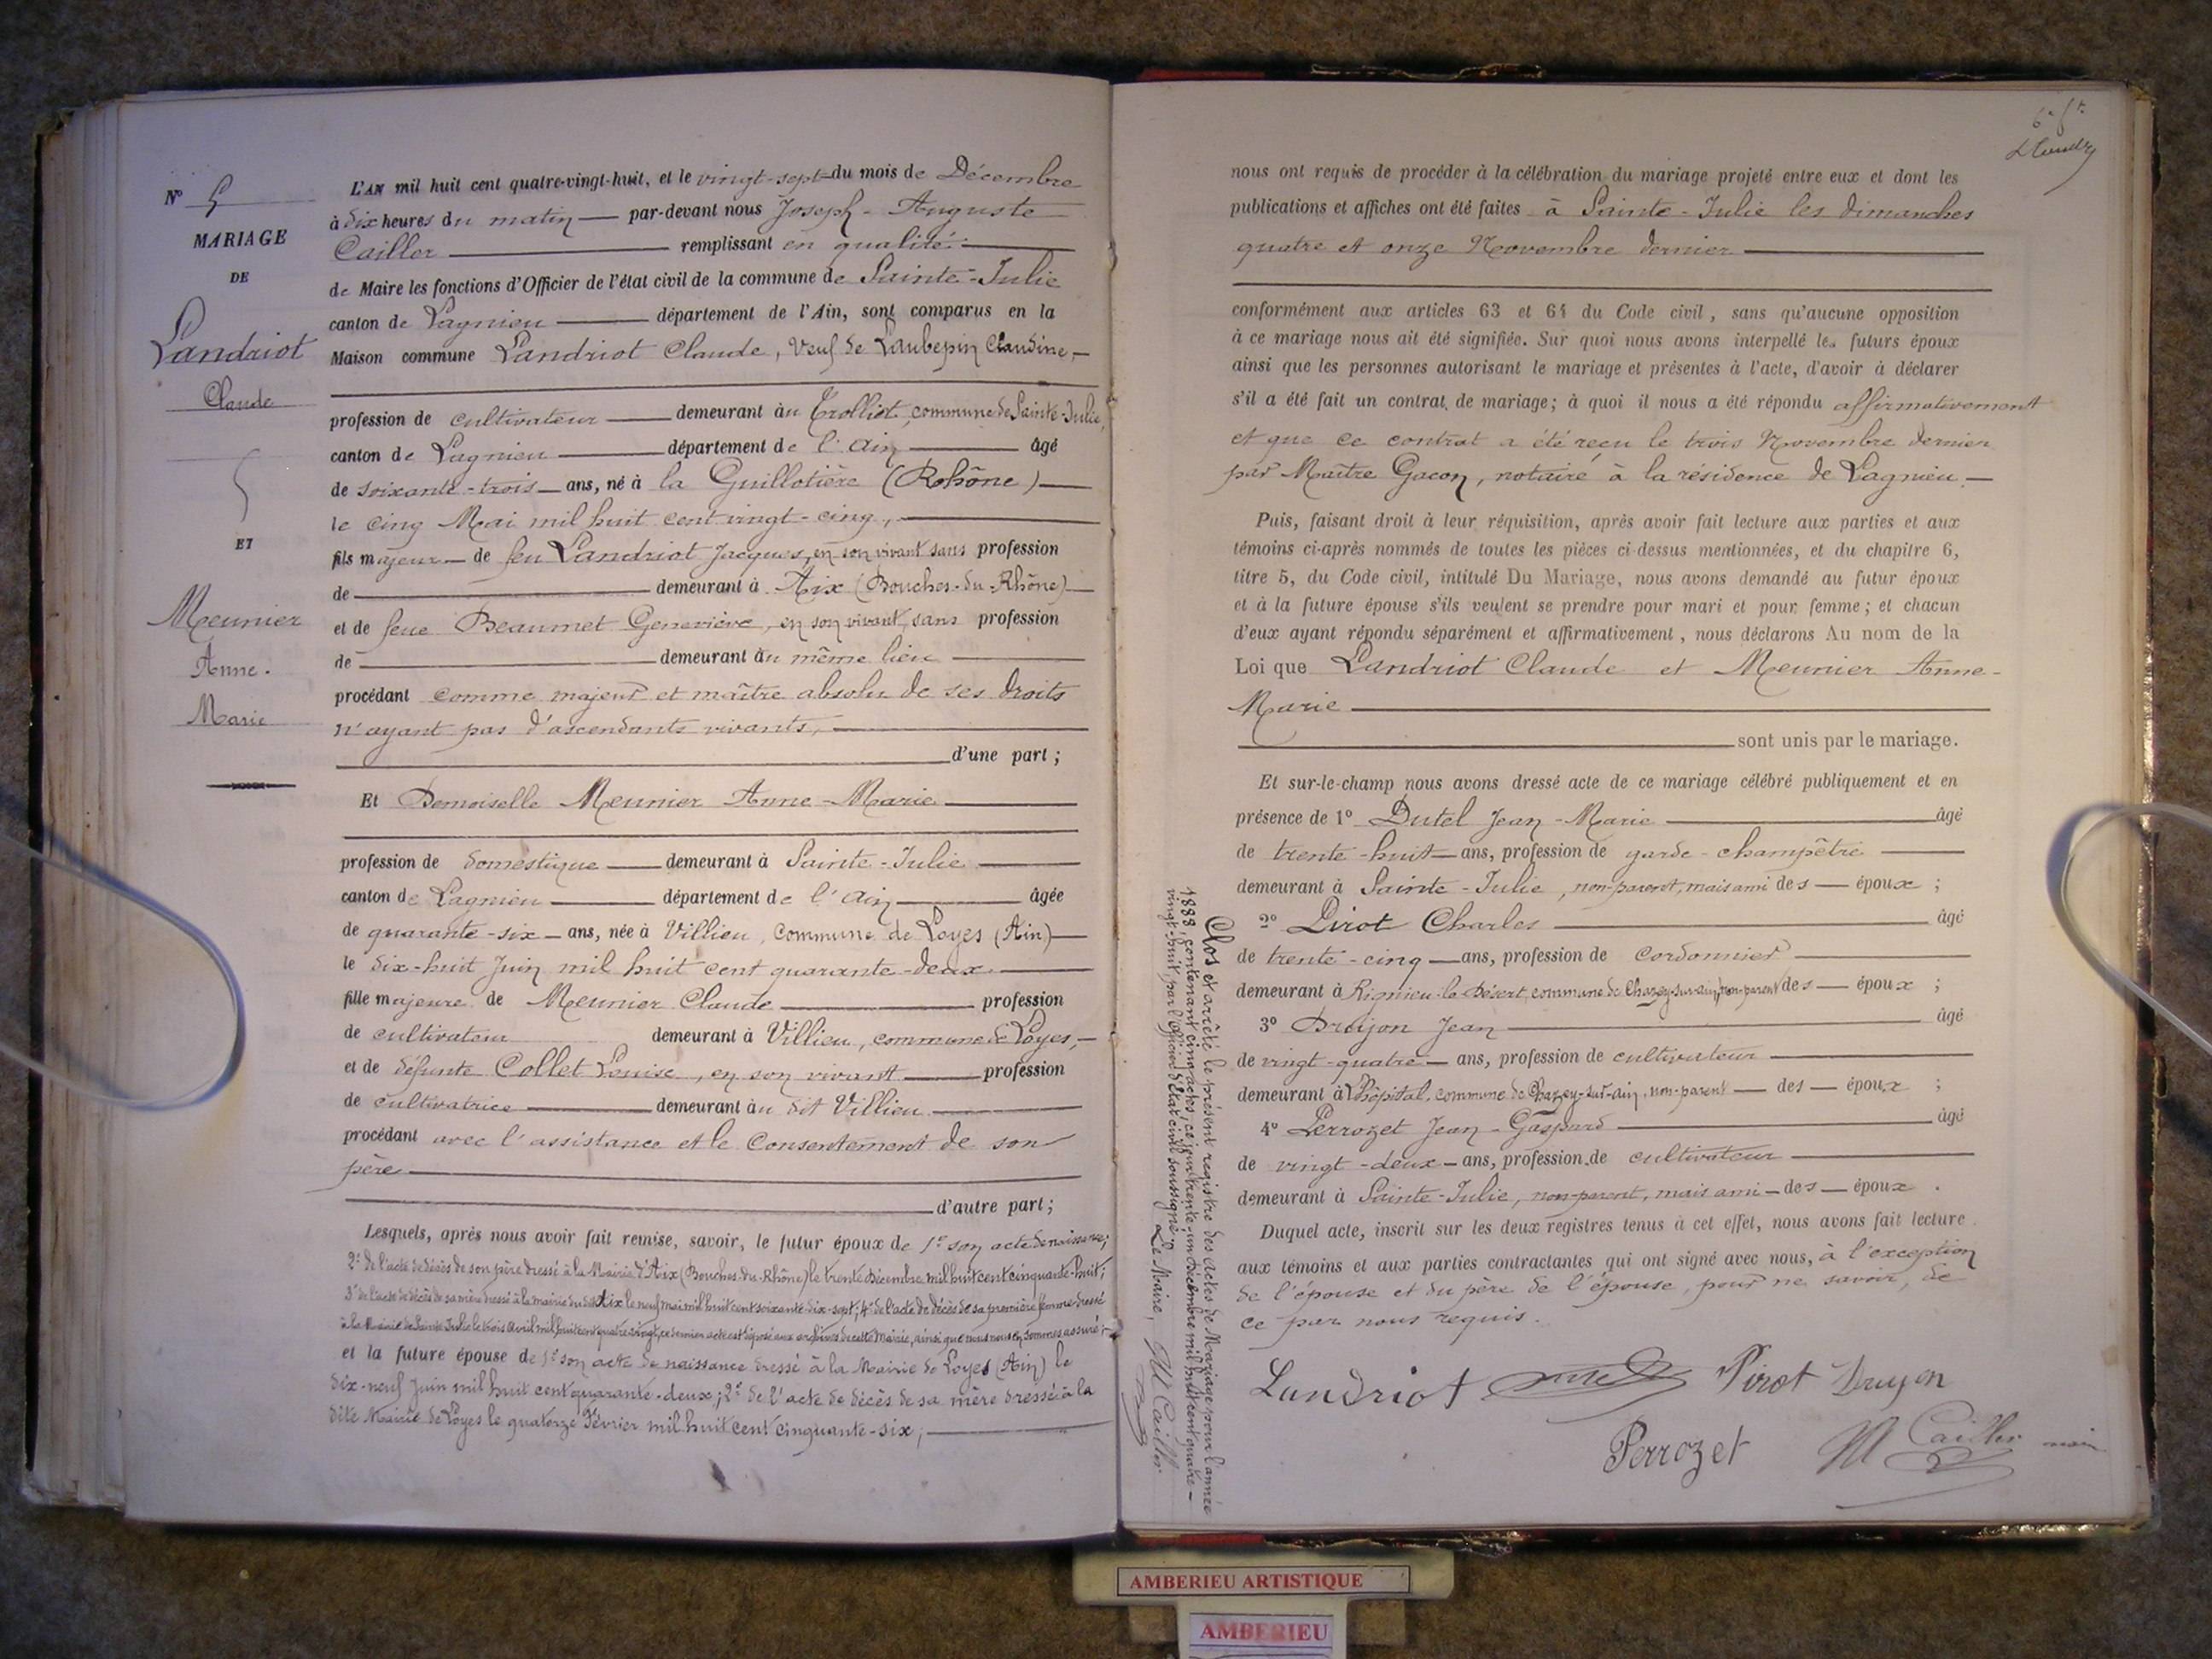 Nº 5
MARIAGE
DE
Landriot
Claude
ET
Meunier
Anne-
Marie
L'AN mil huit cent quatre-vingt-huit, et le vingt-sept du mois de Décembre
à dix heures du matin par-devant nous Joseph-Auguste
Cailler remplissant en qualité
de Maire les fonctions d'Officier de l'état civil de la commune de Sainte-Julie
canton de Lagnieu département de l'Ain, sont comparus en la
Maison commune Landriot Claude, Veuf de Laubepin Claudine,
profession de cultivateur demeurant au Trolliet, commune de Sainte-Julie,
canton de Lagnieu département de l'Ain âgé
de soixante-trois ans, né à la Guillotière (Rohône)
le cinq Mai mil huit cent vingt-cinq,
fils majeur de feu Landriot Jacques, en son vivant sans profession
de demeurant à Aix (Bouches-du-Rhône)
et de feue Beaumet Geneviève, en son vivant, sans profession
de demeurant au même lieu
procédant comme majeur et maître absolu de ses droits
n'ayant pas d'ascendants vivants,
d'une part ;
Et Demoiselle Meunier Anne-Marie
profession de domestique demeurant à Sainte-Julie
canton de Lagnieu département de l'Ain âgée
de quarante-six ans, née à Villieu, commune de Loyes (Ain)
le dix-huit Juin mil huit cent quarante-deux
fille majeure de Meunier Claude profession
de cultivateur demeurant à Villieu, commune de Loyes,
et de défunte Collet Louise, en son vivant profession
de cultivatrice demeurant au dit Villieu
procédant avec l'assistance et le consentement de son
père
d'autre part ;
Lesquels, après nous avoir fait remise, savoir, le futur époux de 1º son acte de naissance;
2º de l'acte de décès de son père dressé à la Mairie d'Aix (Bouches-du-Rhône) le trente décembre mil huit cent cinquante-huit;
3º de l'acte de décès de sa mère dressé à la mairie du dit Aix le neuf mai mil huit cent soixante-dix-sept; 4º de l'acte de décès de sa première femme dressé
à la Mairie de Sainte Julie le trois avril mil huit cent quatre vingt, ce dernier acte est déposé aux archives de cette Mairie, ainsi que nous nous en sommes assuré;
et la future épouse de 1º son acte de naissance dressé à la Mairie de Loyes (Ain) le
dix-neuf Juin mil huit cent quarante-deux; 2º de l'acte de décès de sa mère dressé à la
dite Mairie de Loyes le quatorze Février mil huit cent cinquante-six,
nous ont requis de procéder à la célébration du mariage projeté entre eux et dont les
publications et affiches ont été faites à Sainte-Julie les dimanches
quatre et onze Novembre dernier
conformément aux articles 63 et 64 du Code civil, sans qu'aucune opposition
à ce mariage nous ait été signifiée. Sur quoi nous avons interpellé les futurs époux
ainsi que les personnes autorisant le mariage et présentes à l'acte, d'avoir à déclarer
s'il a été fait un contrat de mariage; à quoi il nous a été répondu affirmativement
et que ce contrat a été reçu le trois Novembre dernier
par Maître Gacon, notaire à la résidence de Lagnieu
Puis, faisant droit à leur réquisition, après avoir fait lecture aux parties et aux
témoins ci-après nommés de toutes les pièces ci-dessus mentionnées, et du chapitre 6,
titre 5, du Code civil, intitulé Du Mariage, nous avons demandé au futur époux
et à la future épouse s'ils veulent se prendre pour mari et pour femme; et chacun
d'eux ayant répondu séparément et affirmativement, nous déclarons Au nom de la
Loi que Landriot Claude et Meunier Anne-
Marie
sont unis par le mariage.
Et sur-le-champ nous avons dressé acte de ce mariage célébré publiquement et en
présence de 1º Dutel Jean-Marie âgé
de trente-huit ans, profession de garde-champêtre
demeurant à Sainte-Julie, non-parent, mais ami des époux ;
2º Pirot Charles âgé
de trente-cinq ans, profession de cordonnier
demeurant à Rignieu-le-Désert, commune de Chazey-sur-ain, non-parent des époux ;
3º Druijon Jean âgé
de vingt-quatre ans, profession de cultivateur
demeurant à l'Hôpital, commune de Chazey-sur-ain, non-parent des époux ;
4º Perrozet Jean-Gaspard âgé
de vingt-deux ans, profession de cultivateur
demeurant à Sainte-Julie, non-parent, mais ami des époux .
Duquel acte, inscrit sur les deux registres tenus à cet effet, nous avons fait lecture
aux témoins et aux parties contractantes qui ont signé avec nous, à l'exception
de l'épouse et du père de l'épouse, pour ne savoir, de
ce par nous requis.
Landriot Pirot Druyon
Perrozet M Cailler
Clos et arrêté le présent registre des actes de Mariage pour l'année
1888, contenant cinq actes, ce jour trente-un décembre mil huit cent quatre-
vingt-huit, par l'officier d'Etat civil soussigné.
Le Maire, M Cailler
AMBERIEU ARTISTIQUE
AMBERIEU